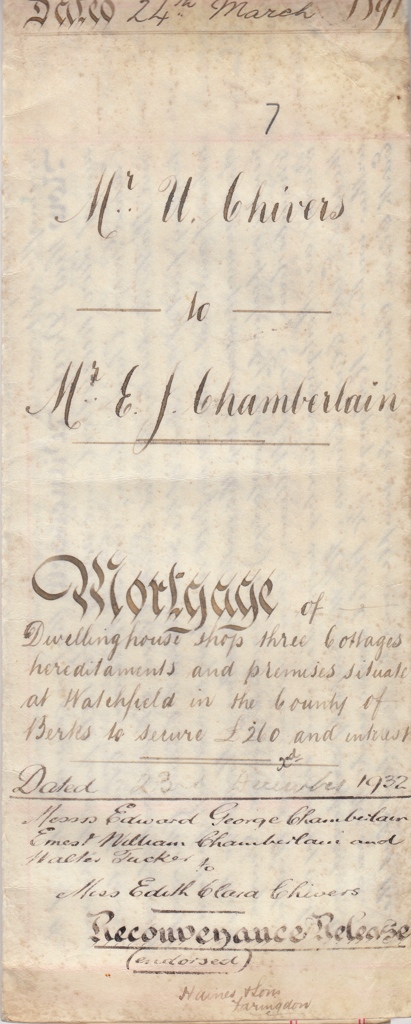 Dated 24th March 1891
7
Mr. U. Chivers
to
Mr. E. J. Chamberlain
Mortgage of
Dwellinghouse shop three Cottages
hereditaments and premises situate
at Watchfield in the County of
Berks to secure £260 and interest
Dated 23rd December 1932
Messrs Edward George Chamberlain
Ernest William Chamberlain and
Walter Tucker
to
Miss Edith Clara Chivers
Reconveyance Release
(endorsed)
Haines & Son
Faringdon